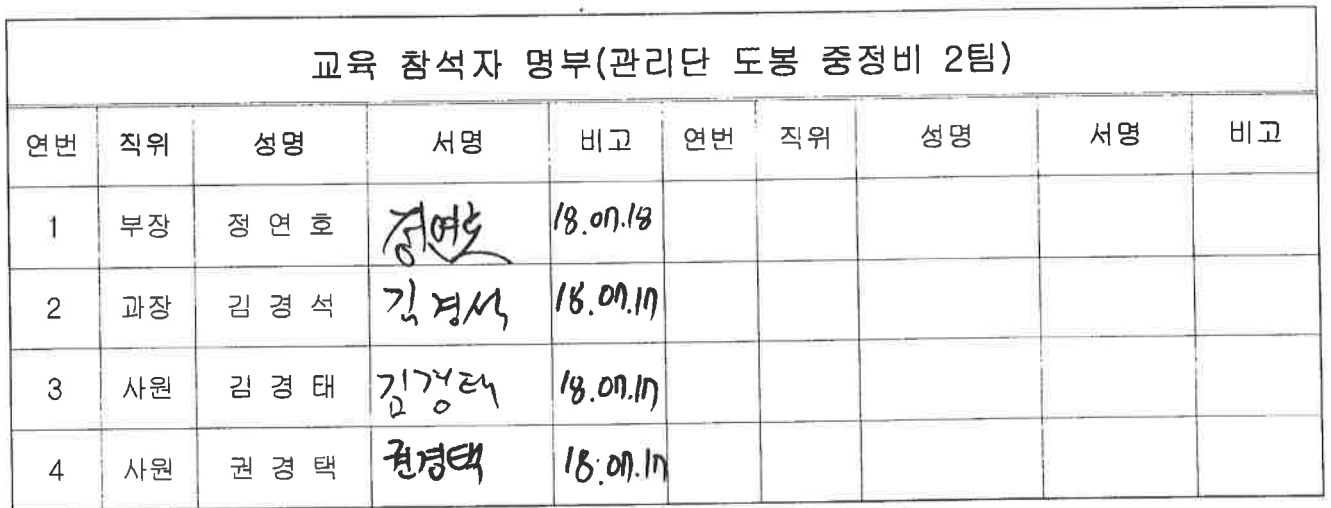 교육 참석자 명부(관리단 도봉 중정비 2팀)
연번 직위 성명 서명 비고 연번 직위 성명 서명 비고
1 부장 정 연 호 정연호 18.07.18
2 과장 김 경 석 김경석 18.07.17
3 사원 김 경 태 김경태 18.07.17
4 사원 권 경 택 권경택 18.07.17